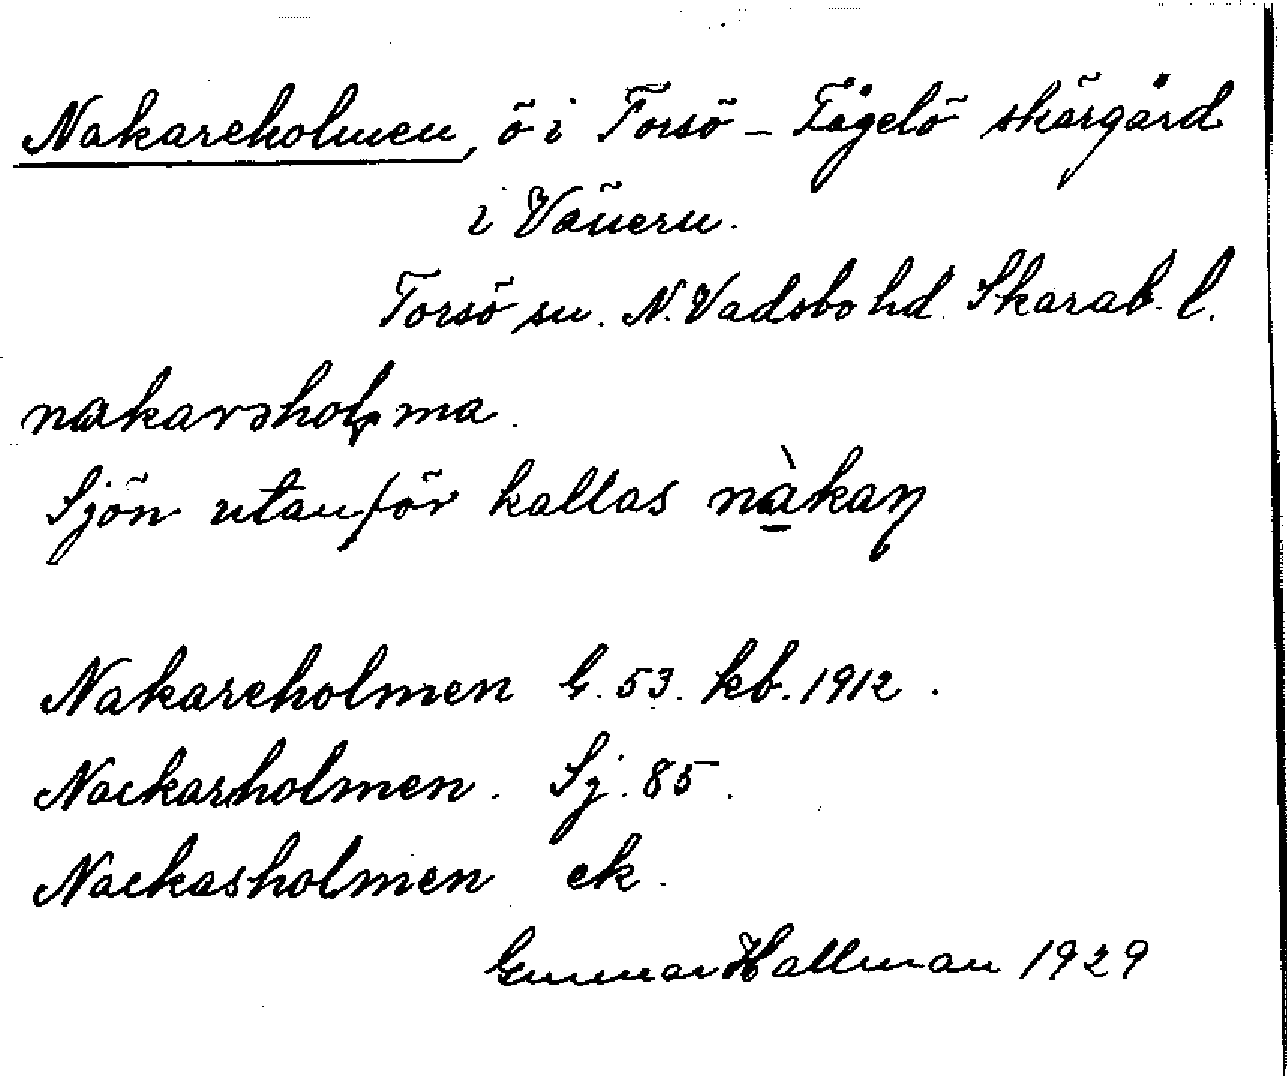 Nakareholmen, ö i Torsö - Fågelö skärgård
i Vänern.
Torsö sn. N. Vadsbo hd. Skarab. l.
nakarəholma.
Sjön utanför kallas nàkaŋ
Nakareholmen G. 53. kb. 1912.
Nackarholmen. Sj. 85.
Nackasholmen ek.
Gunnar Hallman 1929